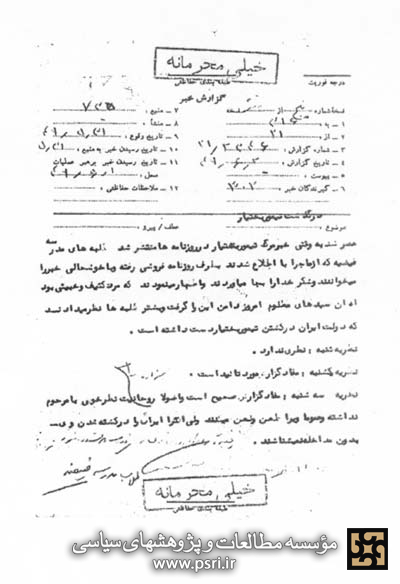 خیلی محرمانه
طبقه بندی حفاظتی
درجه فوریت
گزارش خبر
نسخه شماره یکی از نسخه
۱ - به :
۲ - از : ۲۱
۳ - شماره گزارش :
۴ - تاریخ گزارش :
۵ - پیوست :
۶ - گیرندگان خبر :
۷ - منبع :
۸ - منشأ :
۹ - تاریخ وقوع :
۱۰ - تاریخ رسیدن خبر به منبع :
۱۱ - تاریخ رسیدن خبر برهبر عملیات
محل :
۱۲ - ملاحظات حفاظتی :
موضوع : درگذشت تیمور بختیار
عطف / پیرو :
عصر شنبه وقتی خبر مرگ تیمور بختیار در روزنامه ها منتشر شد طلبه های مدرسه
فیضیه که از ماجرا با اطلاع شدند بطرف روزنامه فروشی رفته و با خوشحالی خبر را
میخواندند و شکر خدا را بجا میآوردند و اظهار مینمودند که مرد کثیف و خبیثی بود
آه آن سیدهای مظلوم امروز دامن این را گرفت و بیشتر طلبه ها نظر میدادند
که دولت ایران در کشتن تیمور بختیار دست داشته است .
نظریه شنبه : نظری ندارد .
نظریه یکشنبه : مفاد گزارش مورد تائید است .
نظریه سه شنبه : مفاد گزارش صحیح است و اصولا روحانیت نظر خوبی با مرحوم
نداشته و عموما ویرا طعن و لعن میکنند ولی اکثرا ایران را در کشته شدن وی
بدون مداخله نمیدانند .
طلاب مدرسه فیضیه
خیلی محرمانه
طبقه بندی حفاظتی
مؤسسه مطالعات و پژوهشهای سیاسی
www.psri.ir